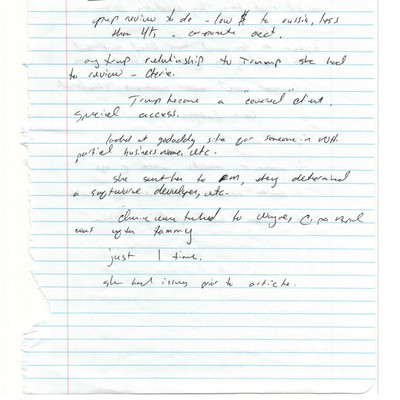 review to do - low $ to russia, less
than 4k. - corporate acct.
any trump relationship to Trump she had
to review -
Trump became a "covered" client,
special access.
looked at godaddy site for someone in WH.
partial business name, etc.
she sent her to RM, they determined
a software developer, etc.
talked to Wayne,
was Tammy
just 1 time.
she had issues prior to article.